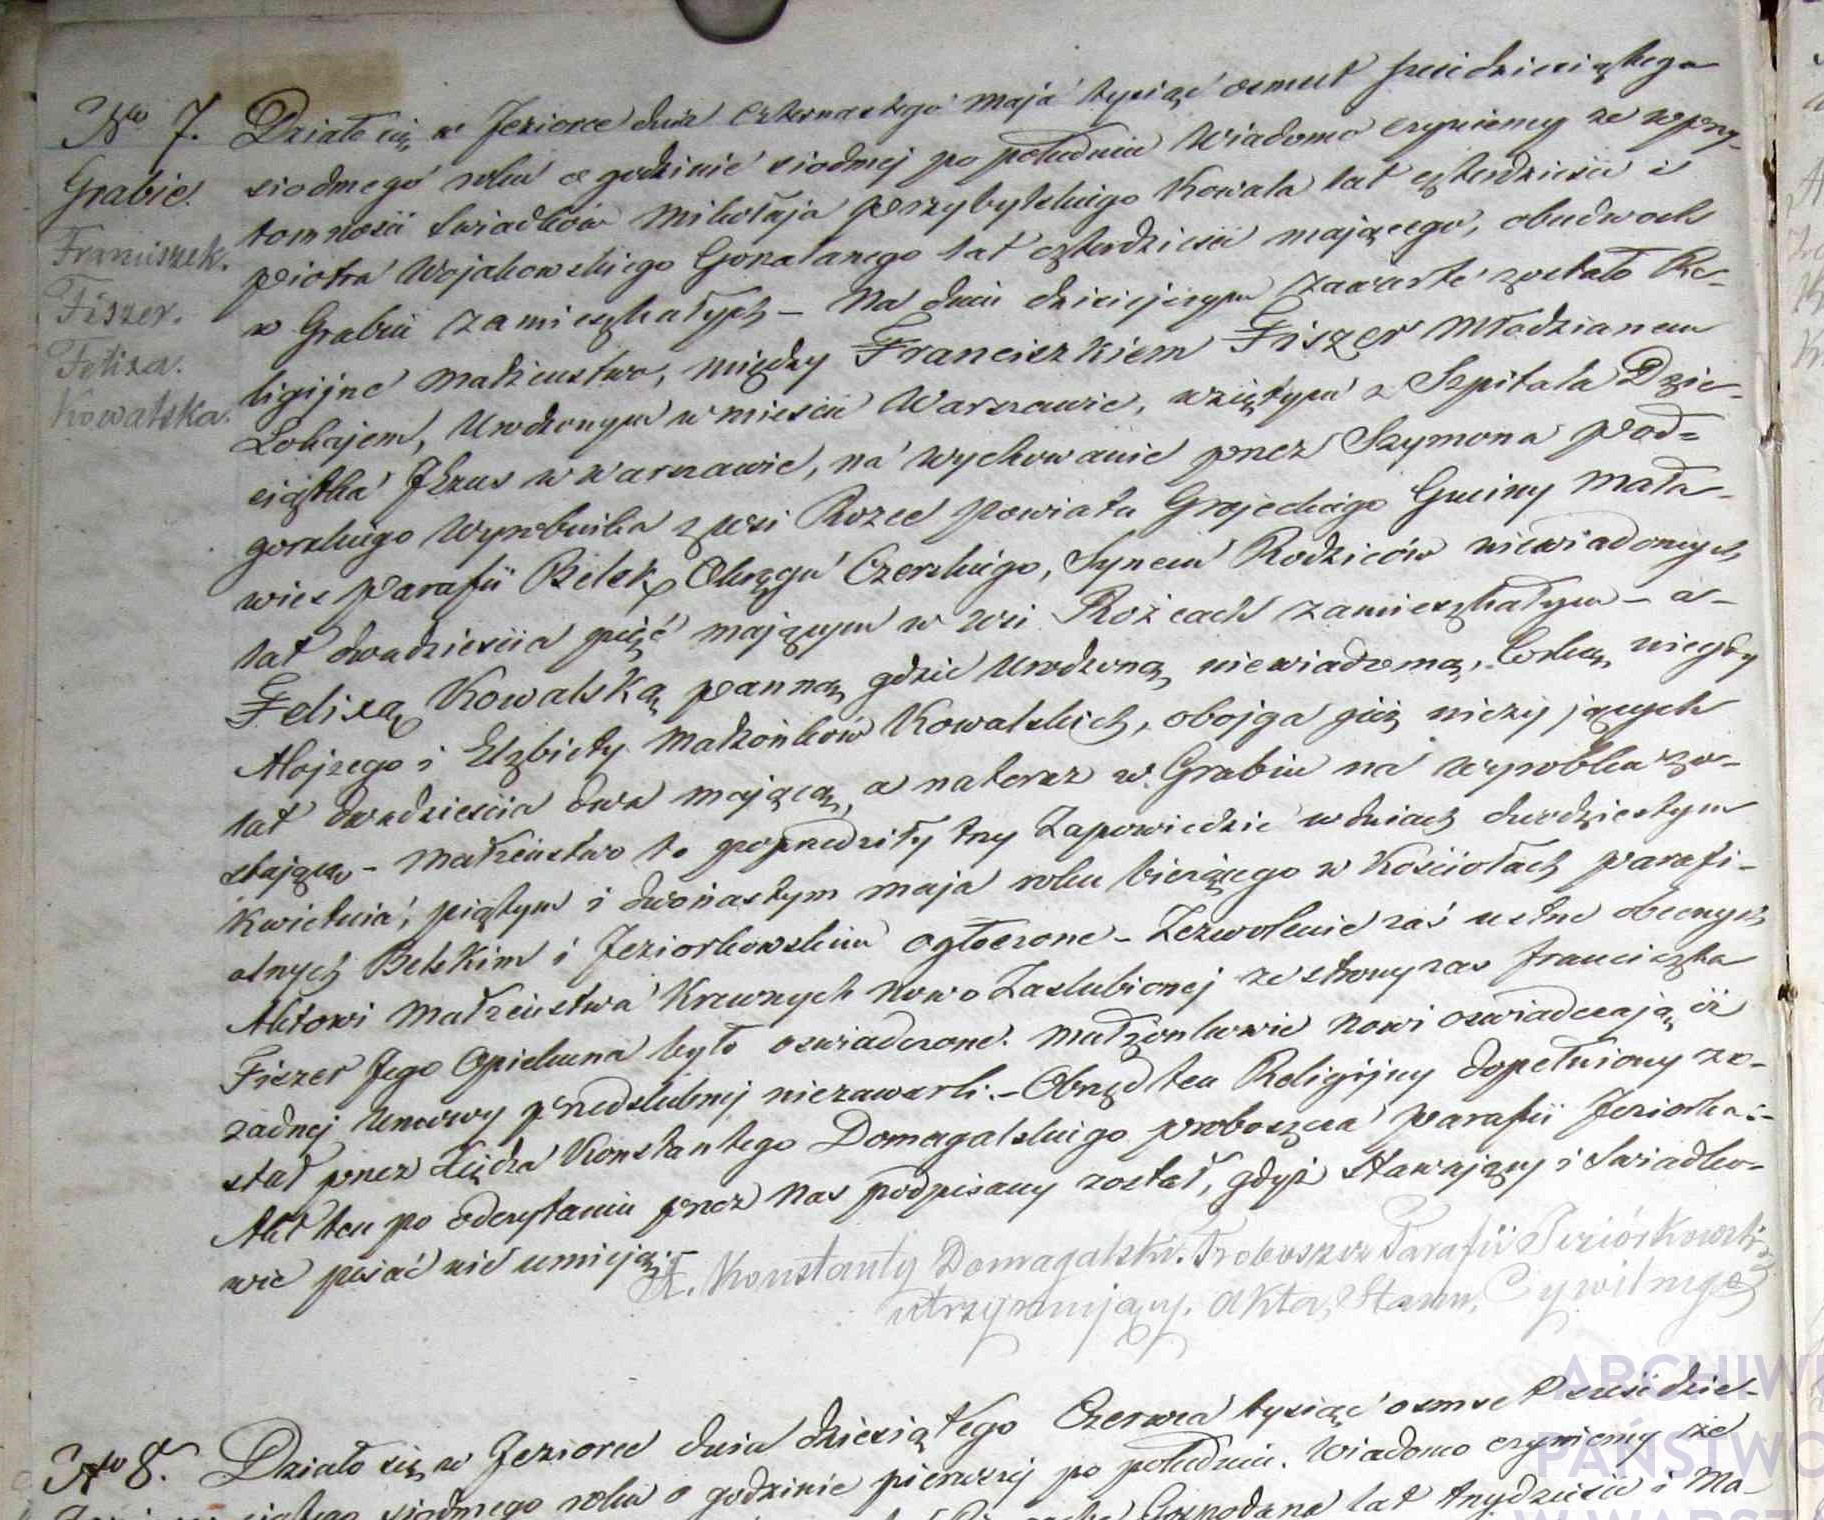 No 7.
Grabie.
Franciszek.
Fiszer.
Felixa.
Kowalska.
Działo się w Jeziorce dnia czternastego maja tysiąc osmset szescdziesiątego
siodmego roku o godzinie siodmej po południu Wiadomo czyniemy ze w przy-
tomnosci swiadków Mikołaja Przybylskiego Kowala lat czterdziescia i
Piotra Wojakowskiego Gorzalanego lat czterdziesci mającego, obudwoch
w Grabiu zamieszkałych – Na dniu dzisiejszym zawarte zostało Re-
ligijne Małżeństwo, między Franciszkiem Fiszer Młodzianem
Lokajem, Urodzonym w miescie Warszawie, wziętym z Szpitala Dzie-
ciątka Jezus w Warszawie, na wychowanie przez Szymona Pod=
gorskiego Wyrobnika z wsi Rozce Powiatu Grojeckiego Gminy Mała-
wies Parafii Belsk, Okręgu Czerskiego, Synem Rodziców niewiadomych
lat dwadziescia pięć mającym w wsi Rożcach zamieszkałym – a –
Felixą Kowalską panną gdzie urodzoną niewiadomą, Corką niegdy
Alojzego i Elzbiety Małżonków Kowalskich, obojga już nieżyjących
lat dwadziescia dwa mającą, a nateraz w Grabiu na wyrobku zo-
stającą – Małżeństwo to poprzedziły trzy Zapowiedzie w dniach dwudziestym
Kwietnia, piątym i dwonastym maja roku bieżącego w Kościołach parafi-
alnych Belskim i Jeziorkowskim ogłoszone – Zezwolenie zaś ustne obecnych
Aktowi Małżeństwa Krewnych nowo Zaslubionej ze strony zas Franciszka
Fiszer Jego Opiekuna było oswiadczone. Małżonkowie Nowi oswiadczają iż
zadnej Umowy przedslubnej niezawarli. – Obrzęd ten Religijny dopełniony zo-
stał przez Xiędza Konstantego Domagalskiego proboszcza Parafii Jeziorka –
Akt ten po odczytaniu przez Nas podpisany został, gdyż Stawający i Swiadko-
wie pisać nie umieją.
X. Konstanty Domagalski. Proboszcz Parafii Jeziórkowski
utrzymujący. Akta, Stanu, Cywilnego
No 8.
Działo się w Jeziorce dnia dziesiątego Czerwca tysiąc osmset szescdzie-
siątego siodmego roku o godzinie pierwszej po południu. Wiadomo czyniemy ze
Gospodarza lat trzydziescie i Ma-
ARCHIWU
PAŃSTWO
W WARSZA